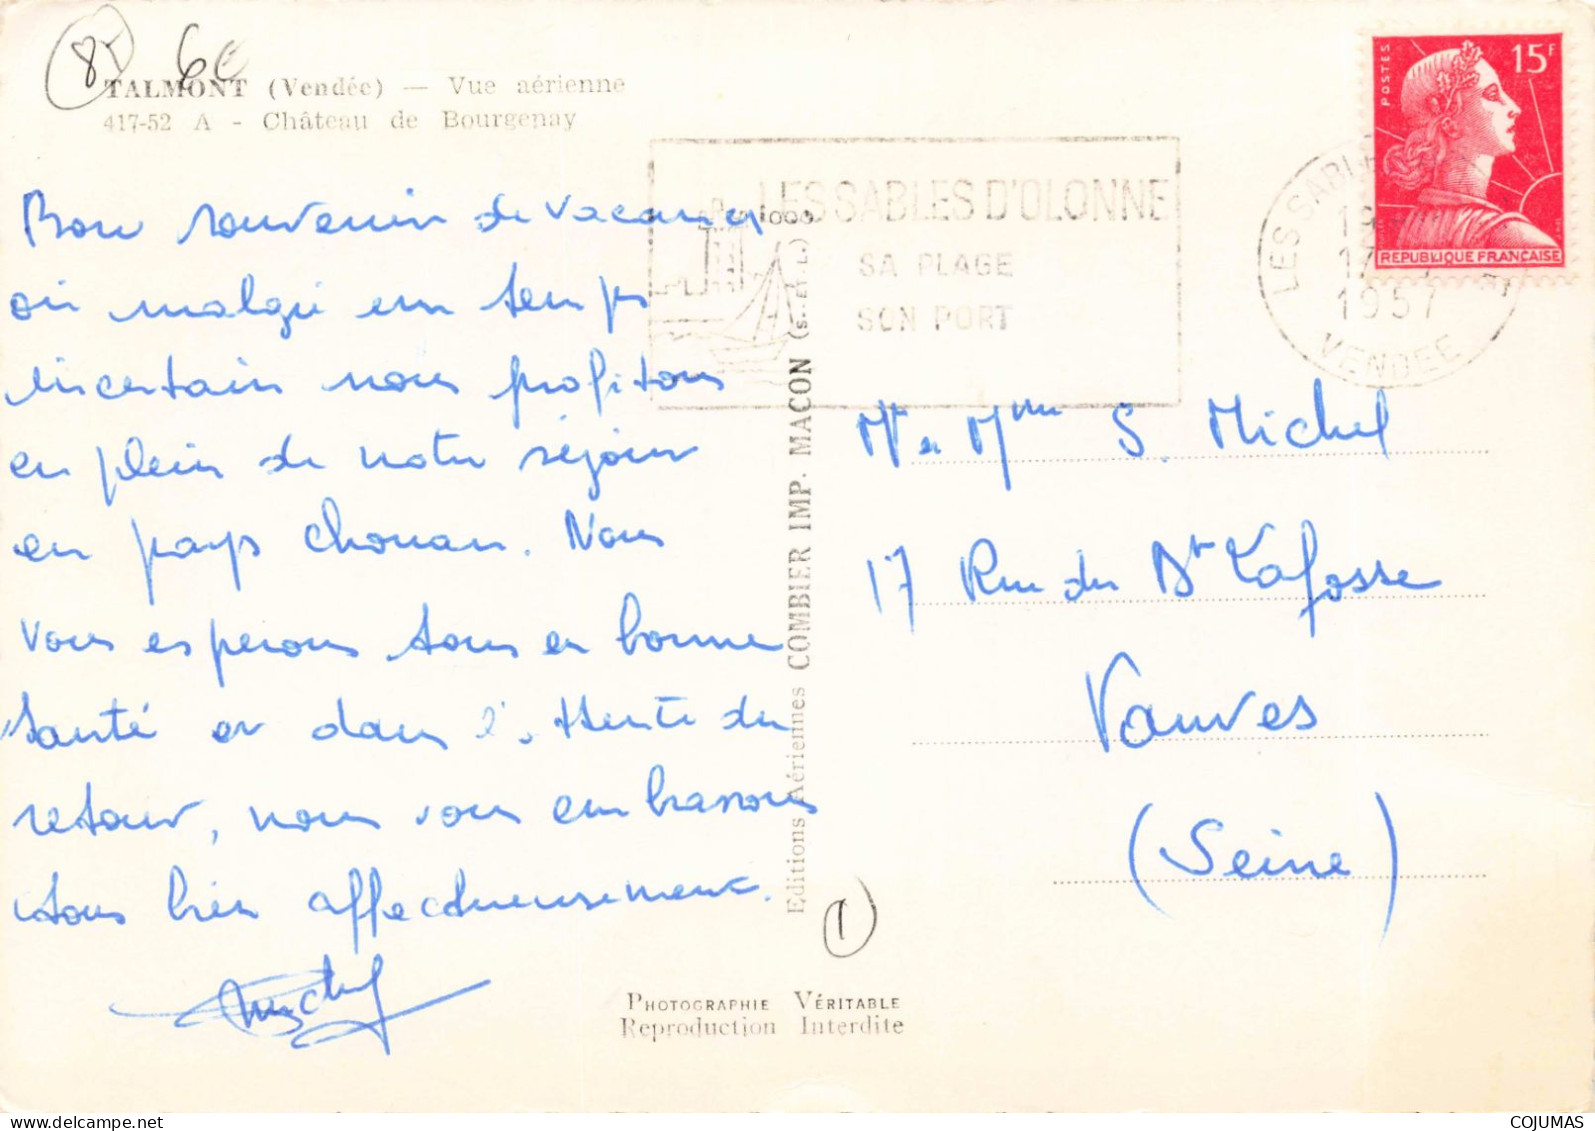 85 6€
TALMONT (Vendée) — Vue aérienne
417-52 A - Château de Bourgenay
Bon souvenir de vacances
où malgré un temps
incertain nous profitons
en plein de notre séjour
en pays chouan. Nous
vous esperons tous en bonne
santé et dans l'attente du
retour, nous vous embrassons
tous bien affectueusement.
Michel
Editions Aériennes COMBIER IMP. MACON (S.-ET-L.)
1000
LES SABLES D'OLONNE
SA PLAGE
SON PORT
LES SABLES
1957
VENDEE
POSTES
15F
REPUBLIQUE FRANÇAISE
Mr et Mme S. Michel
17 Rue du Dr Lafosse
Vanves
(Seine)
1
PHOTOGRAPHIE VÉRITABLE
Reproduction Interdite
COJUMAS